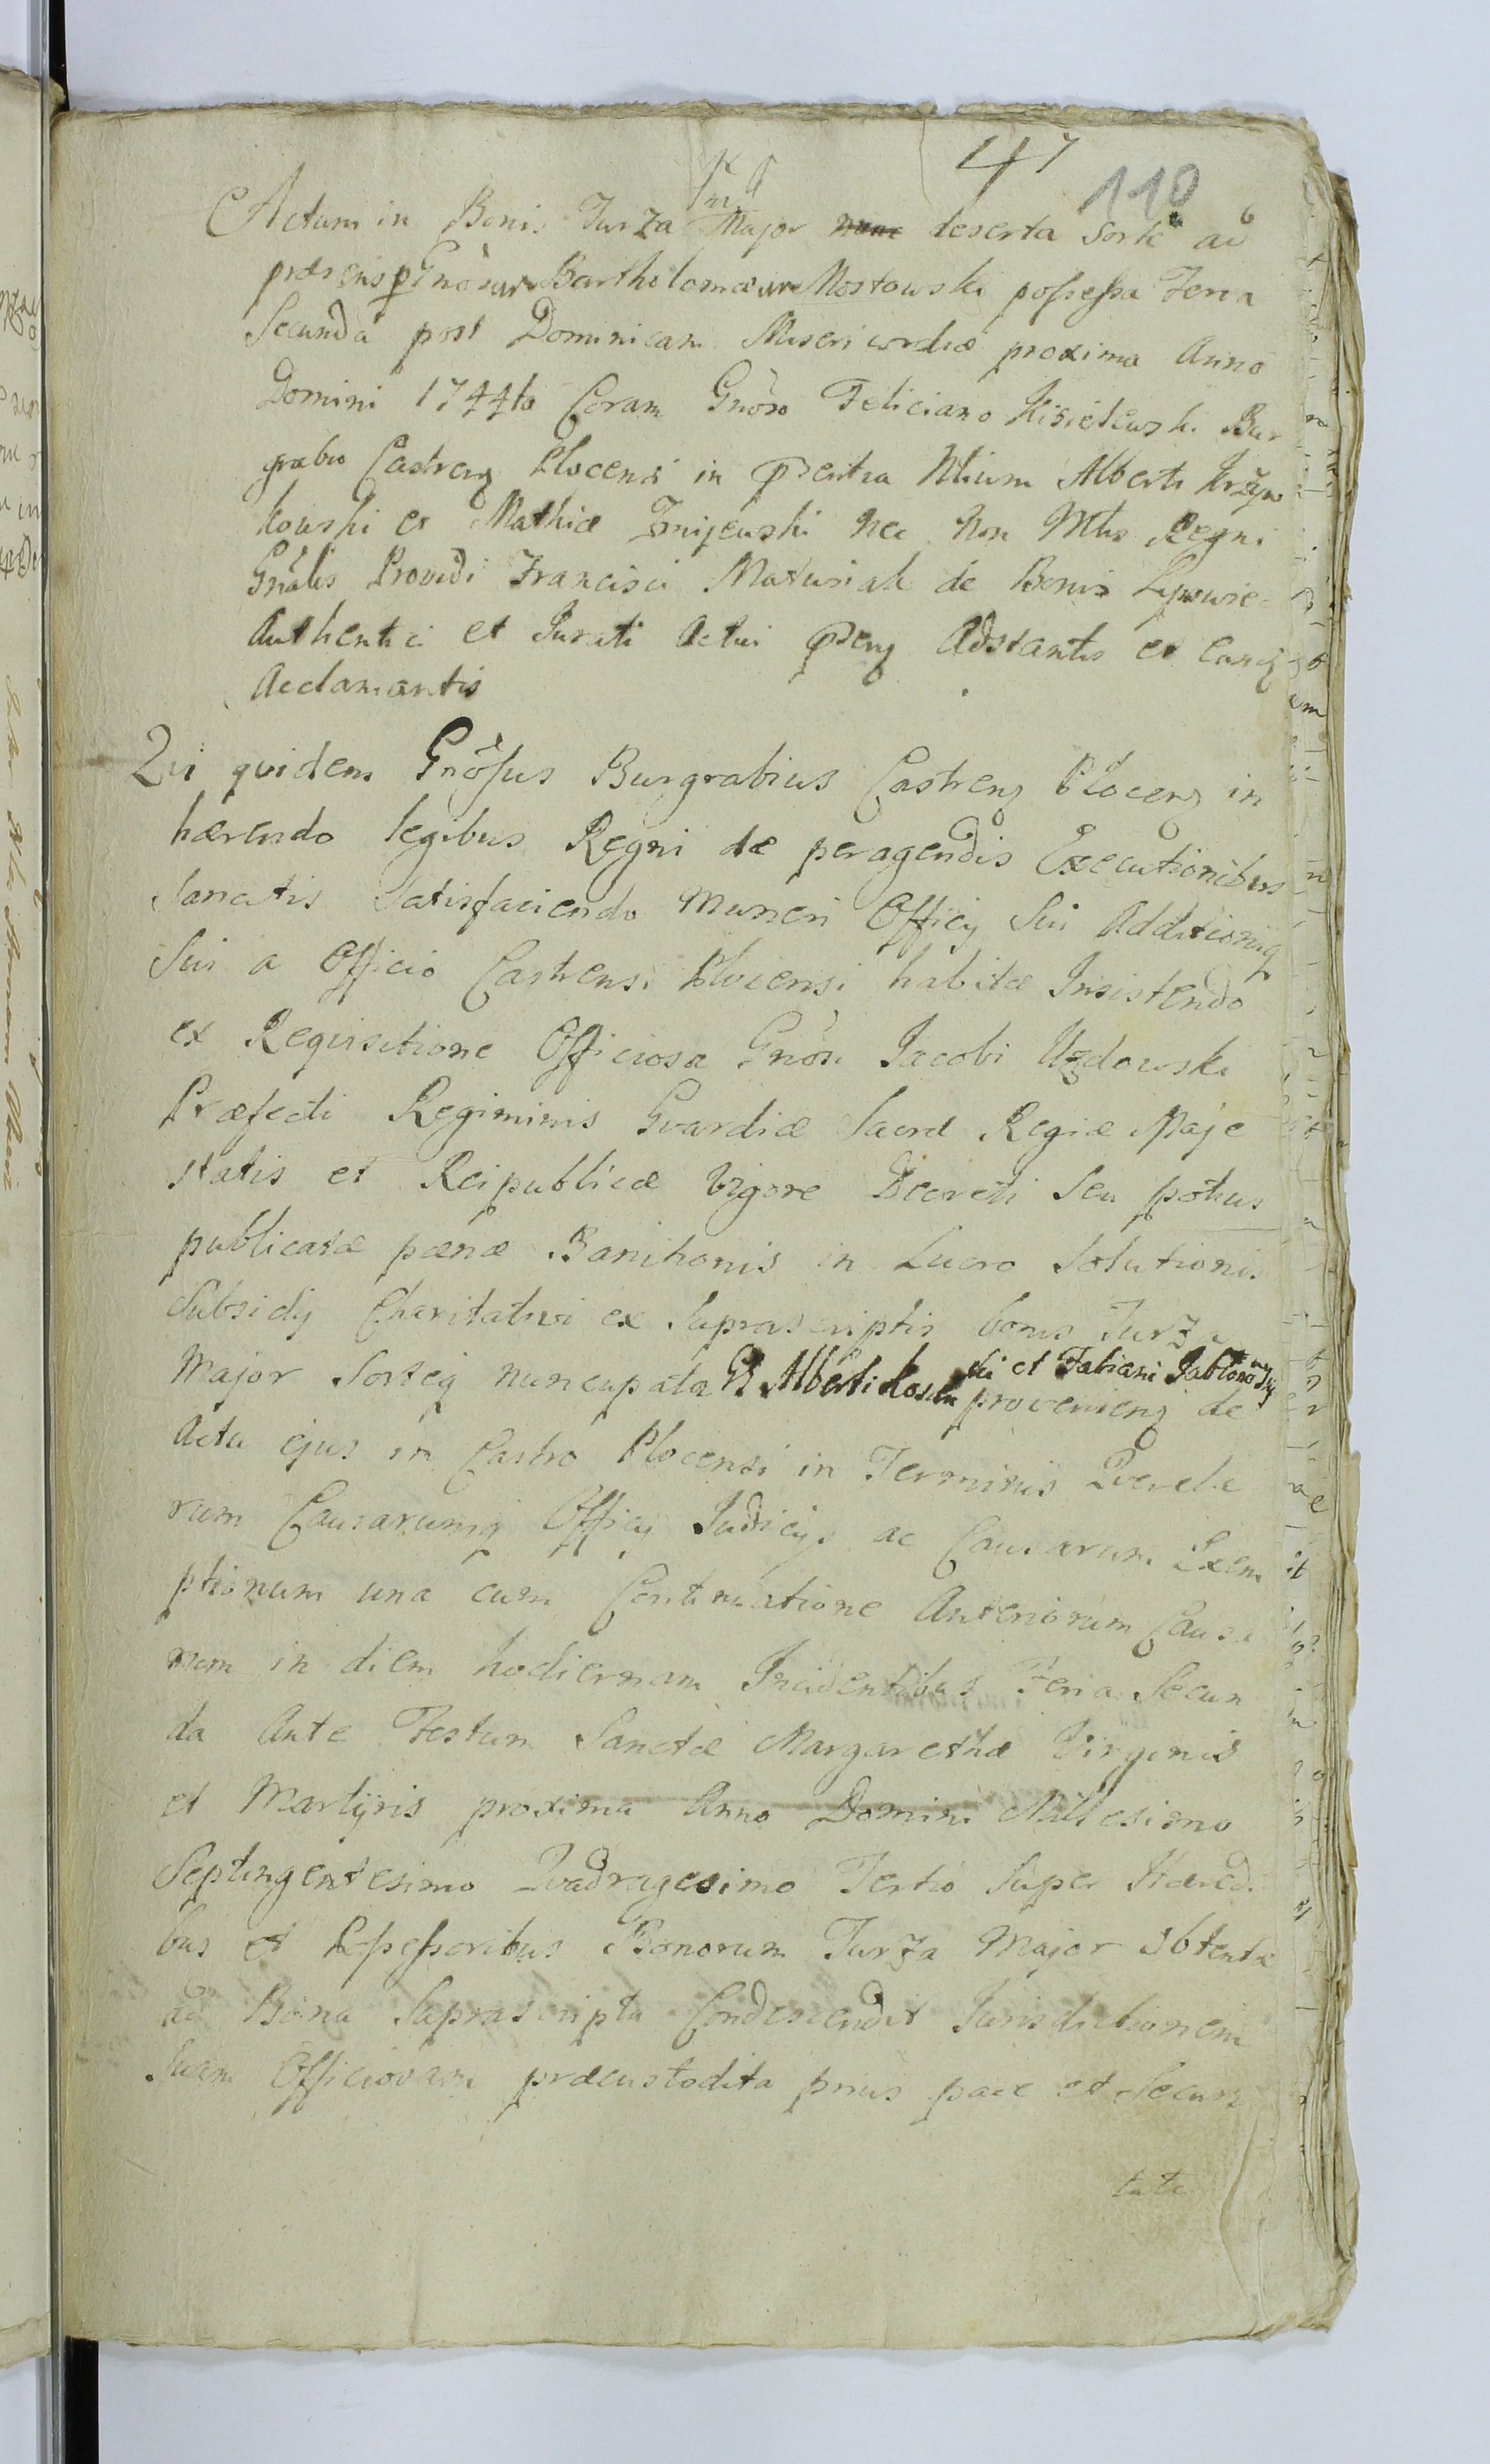 47
110
Actum in Bonis Turza Major nunc deserta Sorte ad
præsens p Gnosum Bartholomæum Mostowski possessa Feria
Secunda post Dominicam Misericordiæ proxima Anno
Domini 1744to Coram Gnoso Feliciano Kisielewski Bur
grabio Castren Plocensi in Pntia Nlium Alberti Krzyw
kowski et Mathiæ Zmijewski Nec Non Mtlis Regni
Gnalis Providi Francisci Matusiak de Bonis
Authentici et Jurati Actui Adstantis et
Acclamantis
Qui quidem Gnosus Burgrabius Castrens Plocens in
hærendo legibus Regni de peragendis Executionibus
Sancitis Satisfaciendo Muneri Officij Sui Additioniq
Sui a Officio Castrensi Plocensi habitæ Insistendo
ex Requisitione Officiosa Gnosi Jacobi Uzdowski
Præfecti Regiminis Gvardiæ Sacræ Regiæ Maje
statis et Reipublicæ Vigore Decreti Seu potius
publicatæ pænæ Banitionis in Lucro Solutionis
Subsidij Charitativi ex Suprascriptis bonis Turza
ski et Fabiani Jablonowskij
Major Sorteq nuncupata G Alberti proveniens de
Actu ejus in Castro Plocensi in Terminis Querela
rum Causarumq Officij Judicijs ac Causarum Exem
ptionum una cum Continuatione Anteriorum Causa
rum in diem hodiernam Incidentibus Feria Secun
da Ante Festum Sanctæ Margarethæ Virginis
et Martijris proxima Anno Domini Millesimo
Septingentesimo Qvadragesimo Tertio Super Hæredi
bus et Possessoribus Bonorum Turza Major obtentæ
ad Bona Suprascripta Condescendit Jurisdictionem
Suam Officiosam præcustodita prius pace et Securi
tate